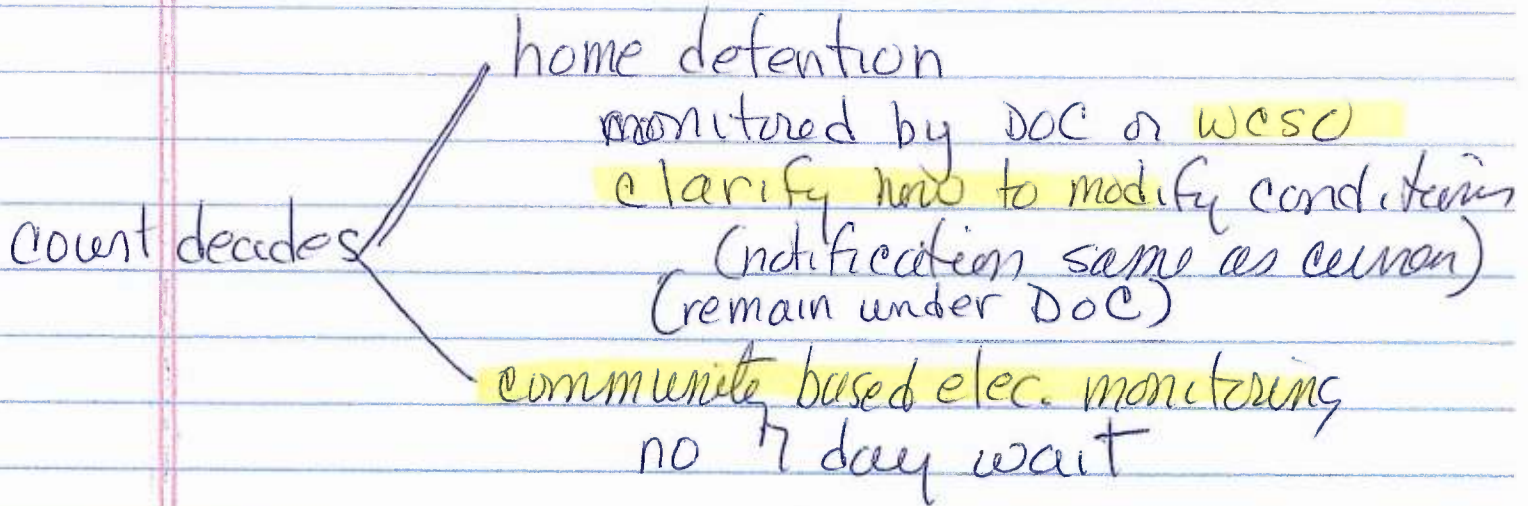 home detention
monitored by DOC or WCSO
clarify how to modify conditions
court decides
(notification same as curren)
(remain under DOC)
community based elec. monitoring
no 7 day wait